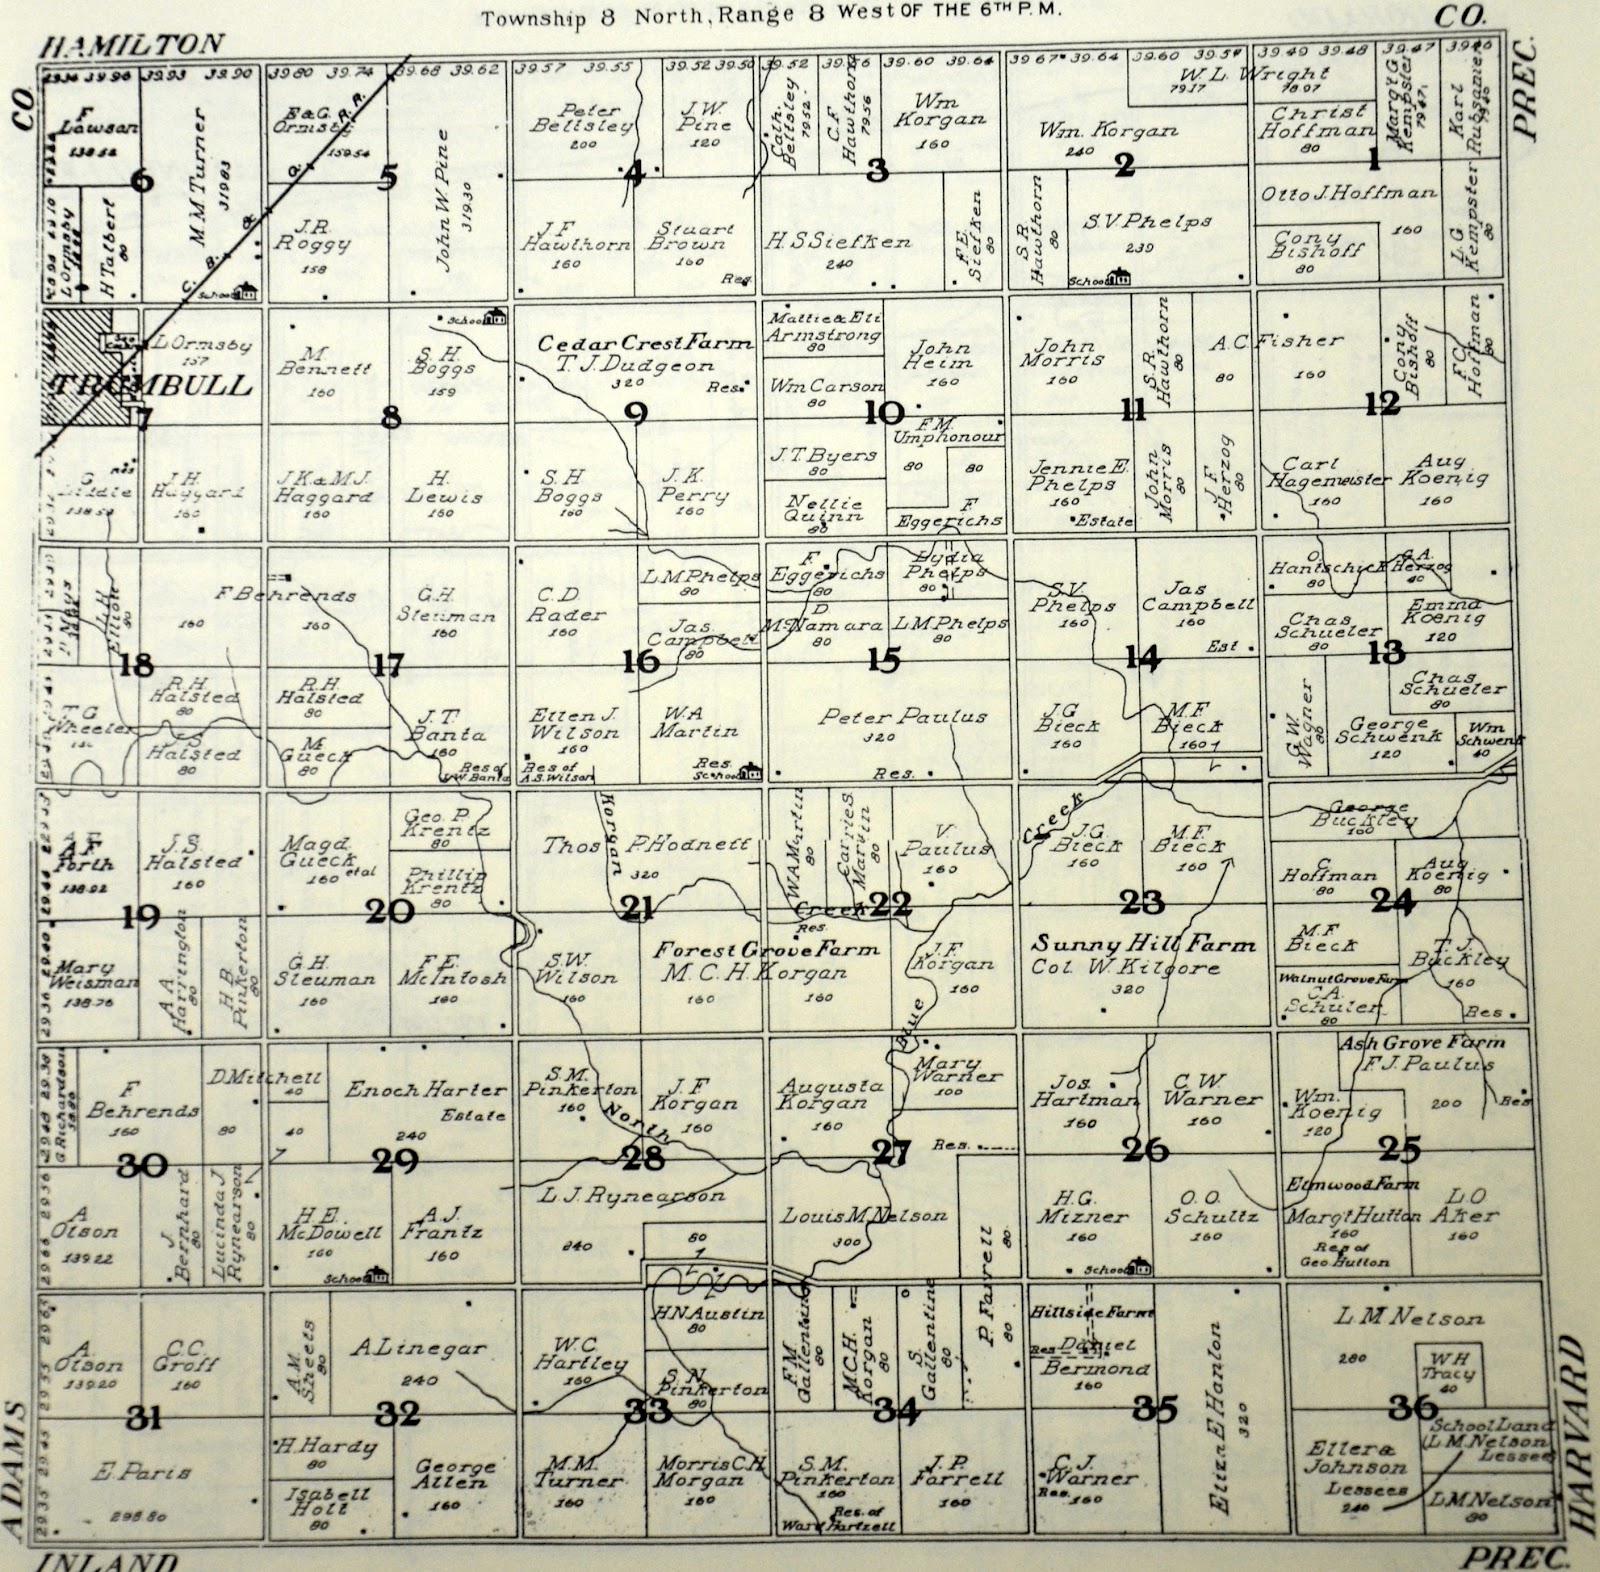 Township 8 North, Range 8 West OF THE 6TH P.M.
HAMILTON
CO.
CO.
PREC.
39.93 39.90
39.80 39.74
39.68 39.62
39.57 39.55
39.52 39.50
39.52 39.56
39.60 39.64
39.67 39.64
39.60 39.57
39.49 39.48
39.47
39.46
F
Lawson
138.52
M M Turner
319.83
L Ormsby
H Talbert
80
6
E & G.
Ormsby
159.54
R.R.
Q.
&
B.
C.
School
J.R.
Roggy
158
John W Pine
319.30
5
Peter
Bellsley
200
J.W.
Pine
120
4
J.F
Hawthorn
160
Stuart
Brown
160
Res
Cath.
Bellsley
79.52
C.F
Hawthorn
79.56
Wm
Korgan
160
3
H S Siefken
240
F.E.
Siefken
80
W. L. Wright
79.17
78.97
Wm. Korgan
240
2
S.R.
Hawthorn
80
S.V. Phelps
239
School
Christ
Hoffman
80
Margt G
Kempster
79.47
Karl
Rubsamen
1
Otto J. Hoffman
160
Cony
Bishoff
80
L G
Kempster
80
TRUMBULL
L Ormsby
157
7
G
138.54
J H.
Haggard
160
M
Bennett
160
School
S. H.
Boggs
159
8
J K & M J.
Haggard
160
H.
Lewis
160
Cedar Crest Farm
T. J. Dudgeon
320
Res.
9
S. H
Boggs
160
J. K.
Perry
160
Mattie & Eli
Armstrong
80
Wm Carson
80
John
Heim
160
10
J. T Byers
80
Nellie
Quinn
80
F.M.
Umphonour
80
80
F
Eggerichs
John
Morris
160
S.R.
Hawthorn
80
A.C. Fisher
80
160
11
Jennie E.
Phelps
160
Estate
John
Morris
80
J F
Herzog
80
Cony
Bishoff
80
F.C.
Hoffman
80
12
Carl
Hagemeister
160
Aug
Koenig
160
L H
Elliott
80
F Behrends
160
160
18
R.H.
Halsted
80
T G
Wheeler
Halsted
80
G.H.
Steuman
160
17
R.H.
Halsted
80
M.
Gueck
80
J. T.
Banta
160
Res of
J.W. Banta
C. D
Rader
160
L M Phelps
80
Jas.
Campbell
80
16
Ellen J.
Wilson
160
Res of
A.S. Wilson
W.A
Martin
Res.
School
F
Eggerichs
80
Lydia
Phelps
80
D
McNamara
80
L M Phelps
80
15
Peter Paulus
320
Res.
S.V.
Phelps
160
Jas
Campbell
160
Est
14
J.G
Bieck
160
M.F
Bieck
160
O.
Hantschick
80
G.A.
Herzog
40
Chas
Schueler
80
Emma
Koenig
120
13
G. W.
Wagner
80
Chas
Schueler
80
George
Schwenk
120
Wm
Schwenk
40
A.F
Forth
138.92
J.S.
Halsted
160
19
Mary
Weisman
138.76
A.A
Harrington
80
H.B.
Pinkerton
80
Magd
Gueck
160 etal
Geo. P.
Krentz
Phillip
Krentz
80
20
G.H.
Steuman
160
F.E.
McIntosh
160
Thos P. Hodnett
320
Korgan
21
S.W.
Wilson
160
Forest Grove Farm
M. C. H. Korgan
160
160
W A Martin
80
Carrie S.
Martin
80
V.
Paulus
160
Creek
22
Res.
J.F.
Korgan
160
Blue
Creek
J.G.
Bieck
160
M.F.
Bieck
160
23
Sunny Hill Farm
Col. W. Kilgore
320
George
Buckley
160
C
Hoffman
80
Aug
Koenig
80
24
M.F.
Bieck
Walnut Grove Farm
C.A.
Schuler
80
T. J.
Buckley
160
Res.
G Richardson
F
Behrends
160
D. Mitchell
40
80
40
30
A
Olson
139.22
J.
Bernhard
80
Lucinda J
Rynearson
80
Enoch Harter
Estate
240
29
H E.
McDowell
160
School
A.J.
Frantz
160
S.M.
Pinkerton
160
J. F
Korgan
160
North
28
L J. Rynearson
240
80
Augusta
Korgan
160
Mary
Warner
100
Res.
27
Louis M Nelson
300
P. Farrell
80
Jos.
Hartman
160
C. W
Warner
160
26
H.G.
Mizner
160
School
O. O.
Schultz
160
Ash Grove Farm
F. J. Paulus
200
Res
Wm.
Koenig
120
25
Elmwood Farm
Margt Hutton
160
Res of
Geo Hutton
L O
Aker
160
A.
Olson
139.20
C.C.
Groff
160
31
E Paris
298.80
A.M.
Sheets
80
A Linegar
240
32
H. Hardy
80
Isabell
Holt
80
George
Allen
160
W. C.
Hartley
160
H N Austin
80
S. N.
Pinkerton
80
33
M. M.
Turner
160
Morris C.H
Morgan
160
F.M.
Gallentine
80
M.C.H.
Korgan
80
S.
Gallentine
80
P. Farrell
80
34
S. M.
Pinkerton
160
Res. of
Ward Hartzell
J. P.
Farrell
160
Hillside Farm
Res
Daniel
Bermond
160
35
Eliza E Hanlon
320
C. J.
Warner
Res.
160
L. M Nelson
280
W H
Tracy
40
36
Eller &
Johnson
Lessees
240
School Land
(L M. Nelson
Lessee
L M Nelson
80
ADAMS
HARVARD
INLAND
PREC.